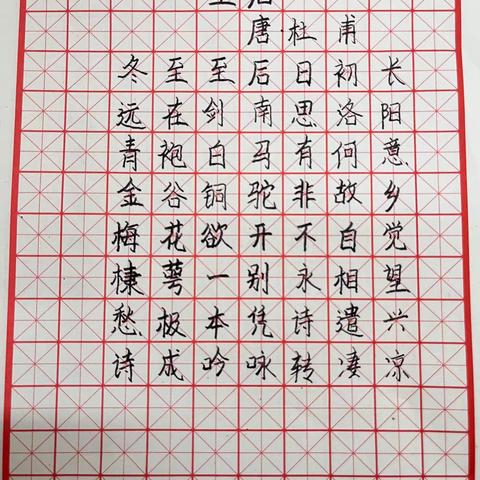 唐 杜甫
冬至至后日初长
远在剑南思洛阳
青袍白马有何意
金谷铜驼非故乡
梅花欲开不自觉
棣萼一别永相望
愁极本凭诗遣兴
诗成吟咏转凄凉